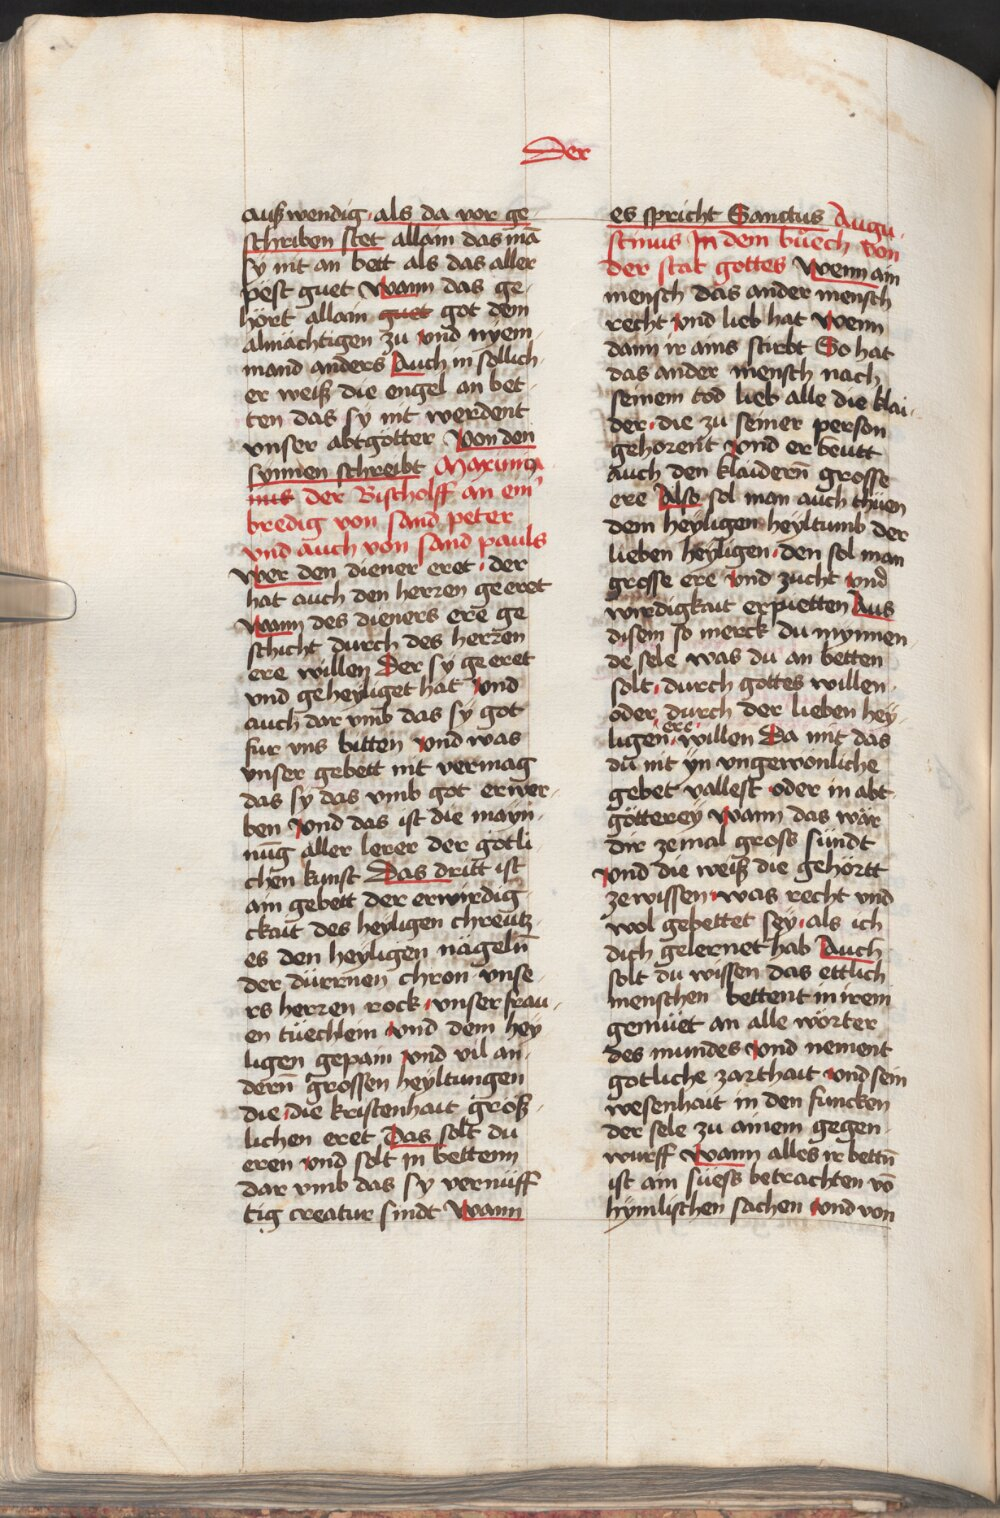 Der
außwendig als da vor ge-
schriben stet allain das mā
sy nit an bett als das aller
pest guet Wann das ge-
hört allain guet got dem
almächtigen zu vnd nyem-
mand anders Auch in sollich-
er weiß die engel an bet-
ten das sy nit werdent
vnser abtgötter Von den
synnen schreibt Maximia
nus der Bischolff an ein'
bredig von sand peter
vnd auch von sand pauls
Wer den diener eret der
hat auch den herren geeret
Wann des dieners ere ge
schicht durch des herrēn
ere willen Der sy geeret
vnd geheyliget hat vnd
auch dar vmb das sy got
fur vns bitten vnd was
vnser gebett nit vermag
das sy das vmb got erwer-
ben vnd das ist die mayn-
nūg aller lerer der götli-
chen kunst Das dritt ist
ain gebett der erwirdig-
ckait des heyligen chreutz-
es den heyligen nägelñ
der dürrnen chron vnse-
rs herren rock vnser frau-
en tüechlein vnd dem hey
ligen gepain vnd vil an-
dern̄ grossen heyltungen
die die kristenhait groß-
lichen eret Das solt du
eren vnd solt in bettenn
dar vmb das sy vernüff
tig creatur sindt Wann
es spricht Sanctus Augu-
stinus In dem büech von
der stat gottes Wenn ain
mensch das ander mensch
recht vnd lieb hat Wenn
dann ir ains stirbt So hat
das ander mensch nach
seinem tod lieb alle die klai-
der die zu seiner person
gehorent vnd er beutt
auch den klaidern̄ grosse
ere Also sol man auch thüen
dem heyligen heyltumb der
lieben heyligen den sol man
grosse ere vnd zucht vnd
wirdigkait erpietten Aus
disem so merck du mynnen
de sele was du an betten
solt durch gottes willen
oder durch der lieben hey-
ligen ere willen Da mit das
du nit yn vngewonliche
gebet vallest oder in abt-
götterey Wann das wär
dir ze mal gross sündt
vnd die weiß die gehörtt
ze wissen was recht vnd
wol gebettet sey als ich
dich gelernet hab Auch
solt du wissen das ettlich
menschen bettent in irem
gemüet an alle wörter
des mundes vnd nement
gotliche zarthait vnd sein
wesenhait in den funcken
der sele zu ainem gegen-
wurff Wann alles ir bettñ
ist ain süess betrachten võ
hymlischen sachen vnd von